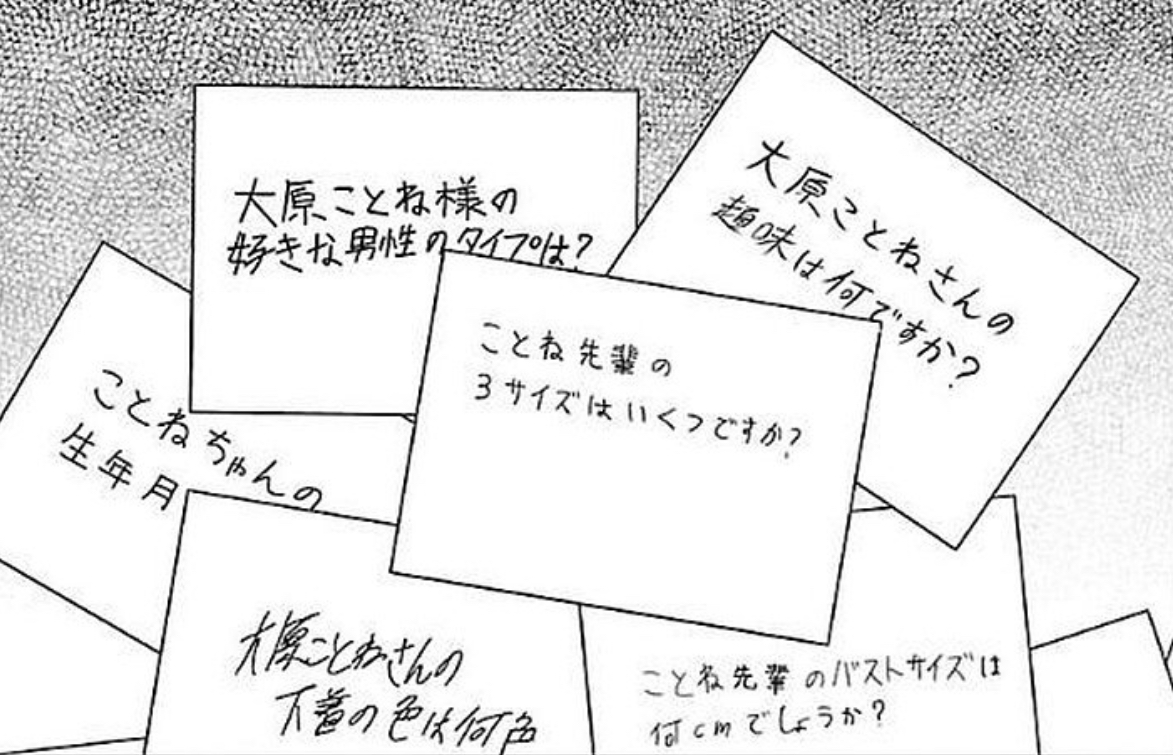 大原ことね様の
好きな男性のタイプは?
大原ことねさんの
趣味は何ですか?
ことねちゃんの
生年月
ことね先輩の
3サイズはいくつですか?
大原ことねさんの
下着の色は何色
ことね先輩のバストサイズは
何cmでしょうか?